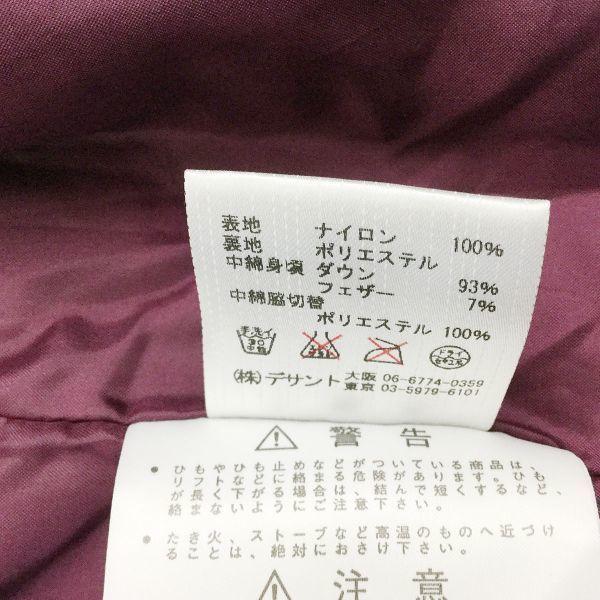 表地 ナイロン 100%
裏地 ポリエステル
中綿身頃 ダウン 93%
フェザー 7%
中綿脇切替
ポリエステル 100%
手洗イ
30
中性
ドライ
セキユ系
(株)デサント 大阪 06-6774-0359
東京 03-5979-6101
警告
• ひもやひも止めなどがついている商品は、
リフトなどに絡まる危険があります。ひも
が長く下がる場合は、結んで短くするなど、
絡まないようにご注意下さい。
• たき火、ストーブなど高温のものへ近づけ
ることは、絶対におさけ下さい。
注意